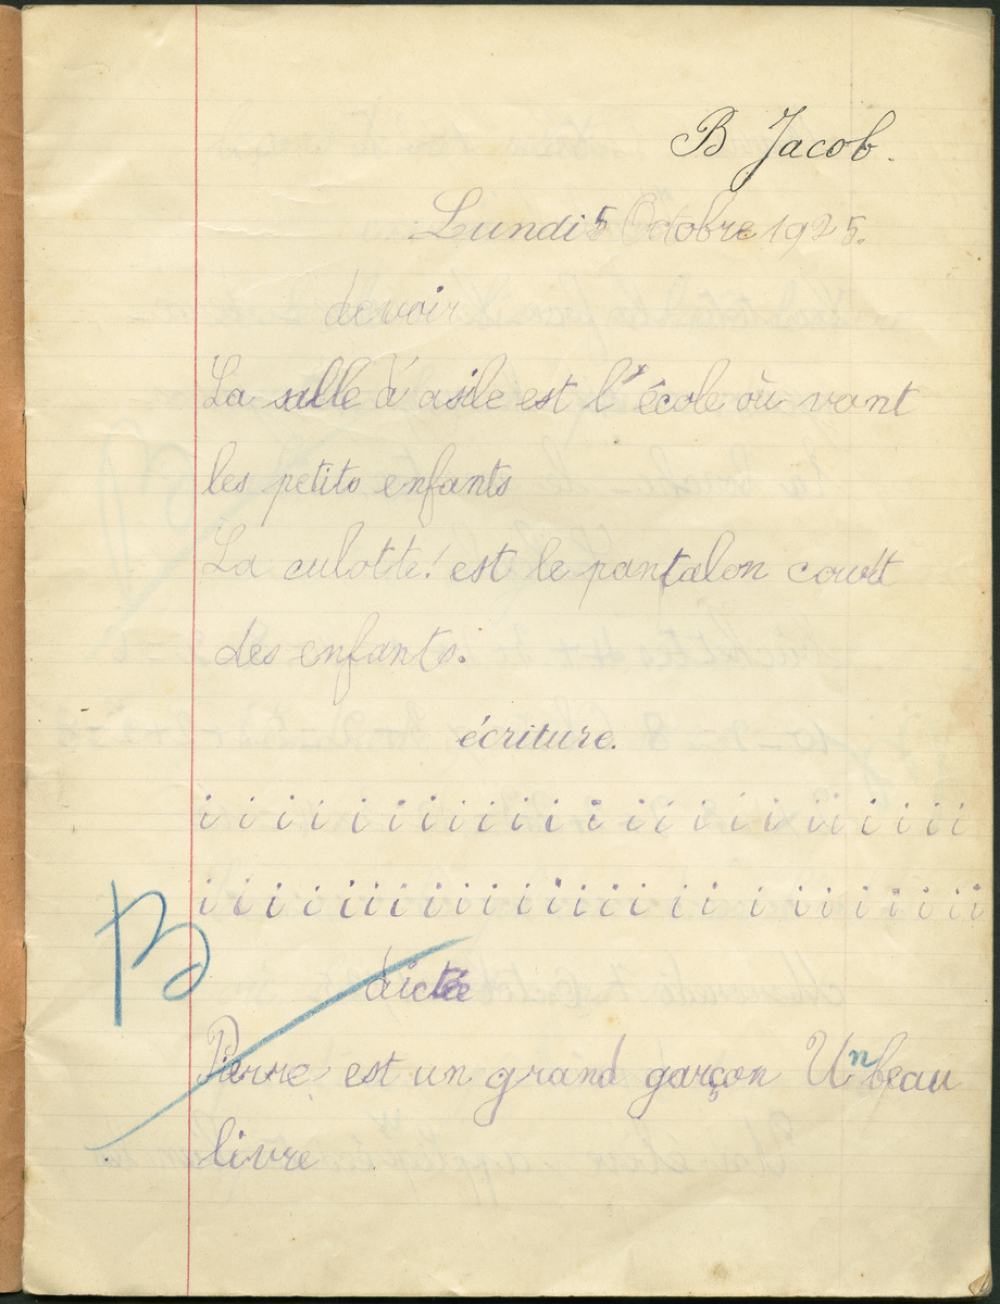 B Jacob.
Lundi 5 Octobre 1925.
devoir
La salle d'asile est l'école où vont
les petits enfants
La culotte! est le pantalon court
des enfants.
écriture.
i i i i i i i i i i i i i i i i i i i i i i i i
i i i i i i i i i i i i i i i i i i i i i i i i i
B
dictée
Pierre est un grand garçon Un beau
livre